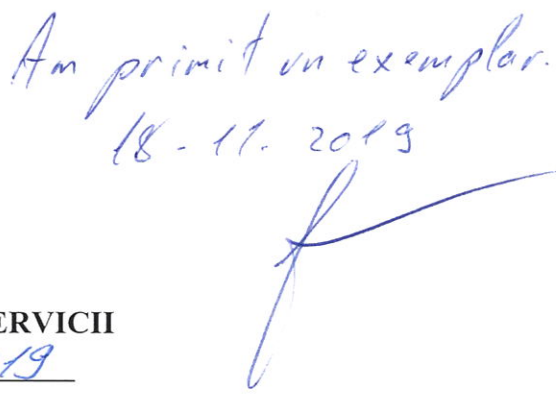 Am primit un exemplar.
18-11. 2019
ERVICII
19